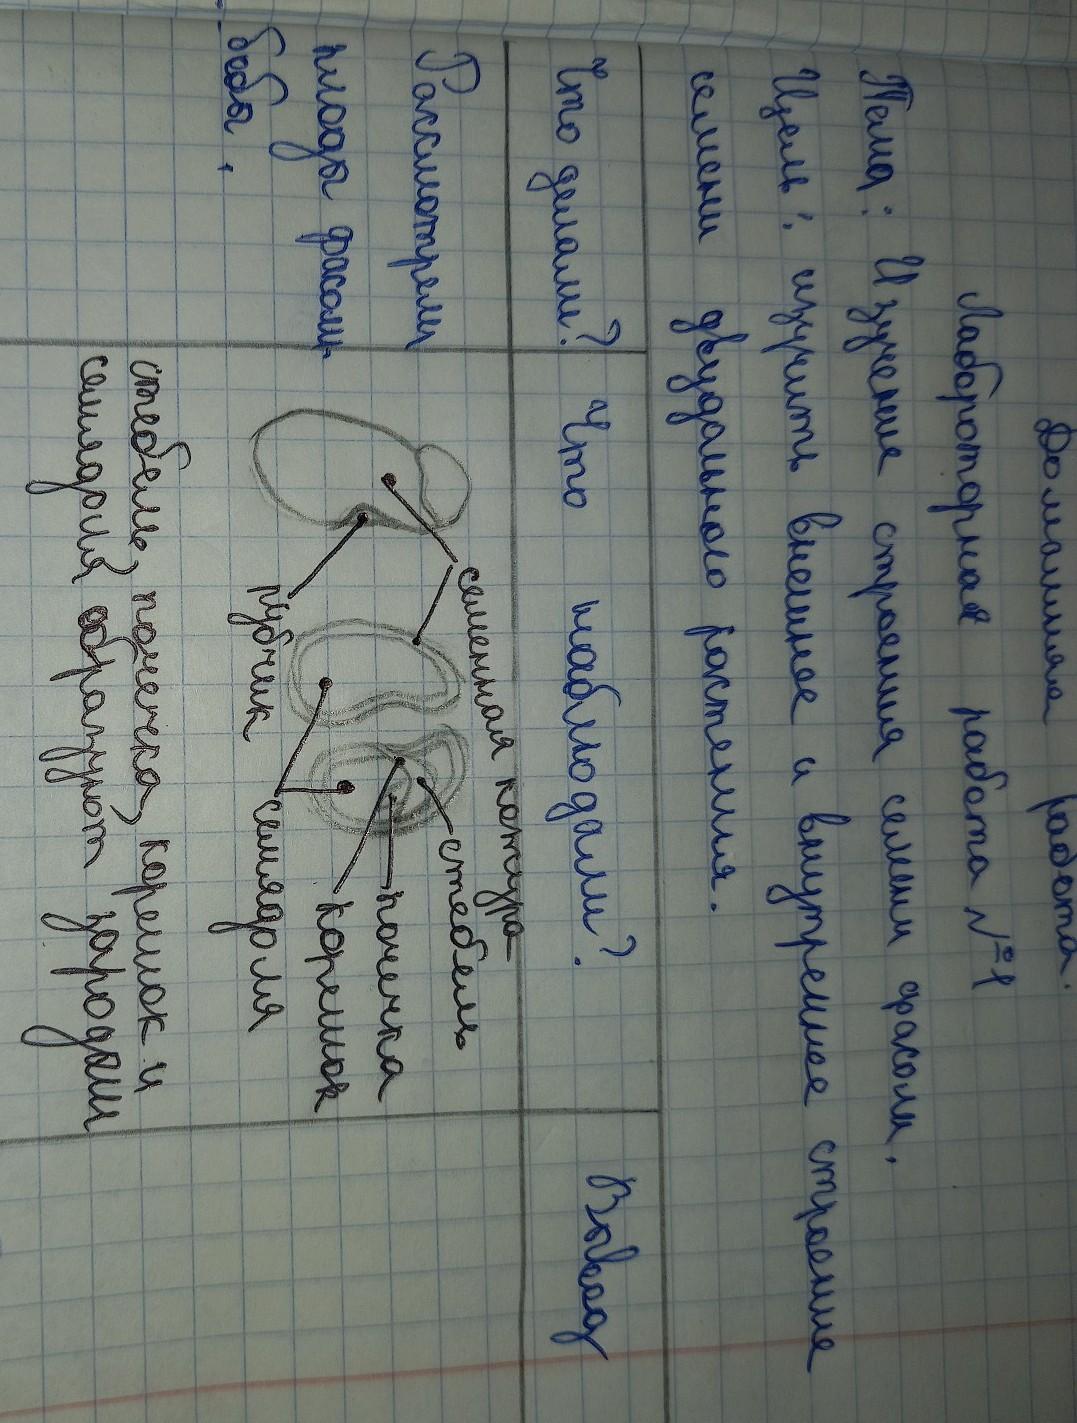 Домашняя работа.
Лабораторная работа №1
Тема: Изучение строения семени фасоли.
Цель: изучить внешнее и внутреннее строение
семени двудольного растения.
Что делали?
Что наблюдали?
Вывод
Рассмотрели
плоды фасоли
бобы.
семенная кожура
стебель
почечка
корешок
семядоля
рубчик
стебель, почечка, корешок и
семядоля образуют зародыш